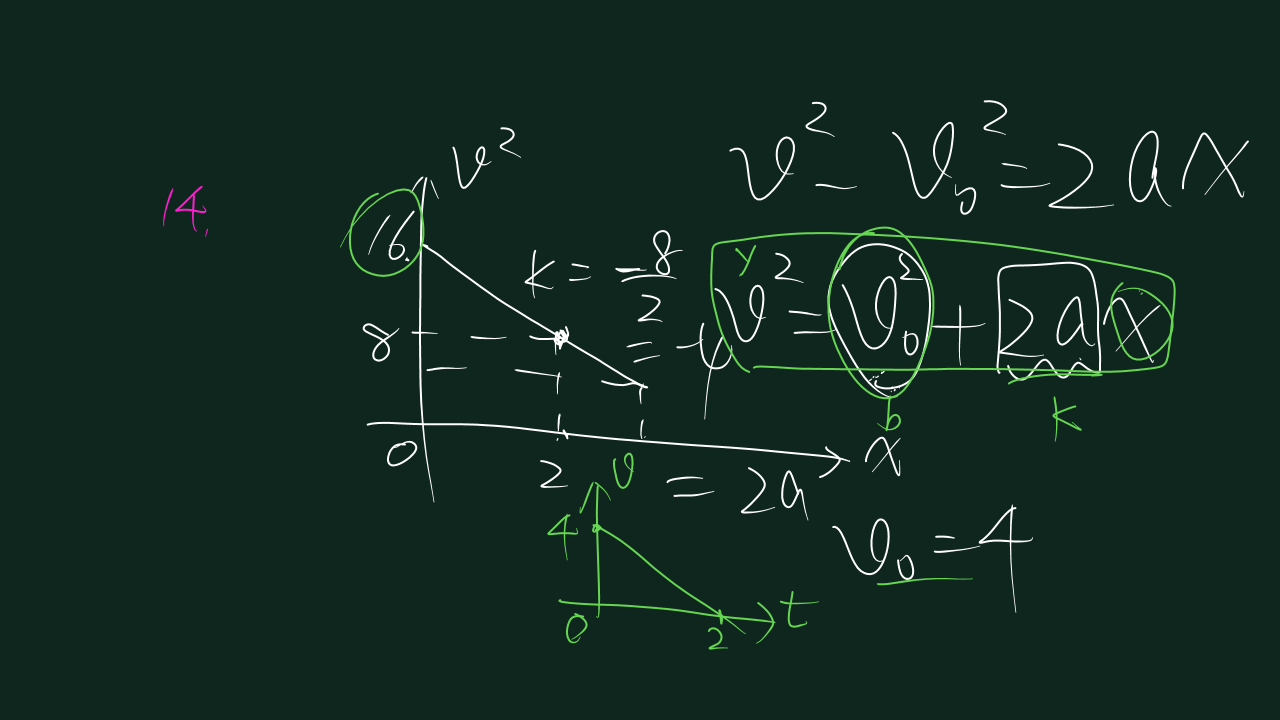 14.
v²
16
8
0
2
x
k = -8/2
= -4
= 2a
v² - v₀² = 2ax
y
v² = v₀² + 2ax
b
k
v₀ = 4
v
4
0
2
t